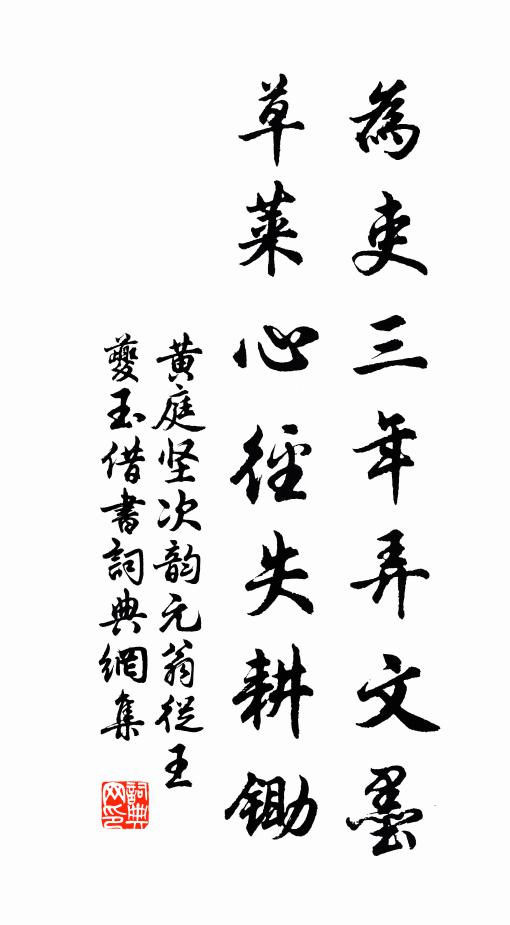 為吏三年弄文墨
草萊心徑失耕鋤
黄庭坚次韵元翁從王
夔玉借書詞典網集
詞典网印